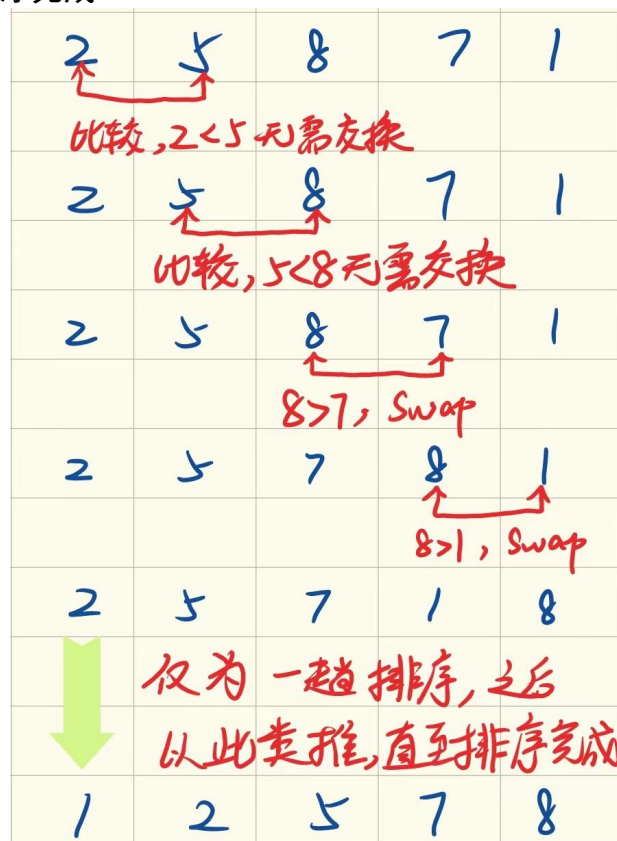 2 5 8 7 1
比较,2<5 无需交换
2 5 8 7 1
比较,5<8无需交换
2 5 8 7 1
8>7, Swap
2 5 7 8 1
8>1, Swap
2 5 7 1 8
仅为一趟排序,之后
以此类推,直至排序完成
1 2 5 7 8